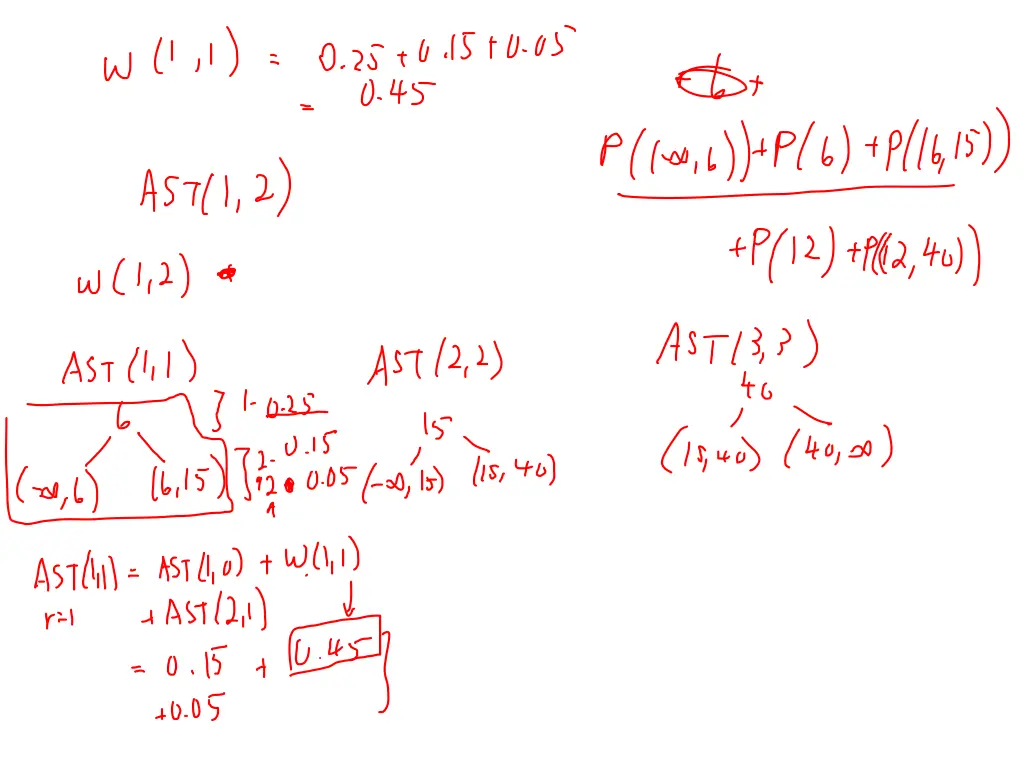 W(1,1) = 0.25+0.15+0.05
= 0.45
6
P((-∞,6))+P(6)+P((6,15))
+P(12)+P((12,40))
AST(1,2)
W(1,2)
AST(1,1)
6
(-∞,6) (6,15)
1· 0.25
2· 0.15
2· 0.05
AST(2,2)
15
(-∞,15) (15,40)
AST(3,3)
40
(15,40) (40,∞)
AST(1,1) = AST(1,0) + W(1,1)
r=1 + AST(2,1)
= 0.15 + 0.45
+0.05